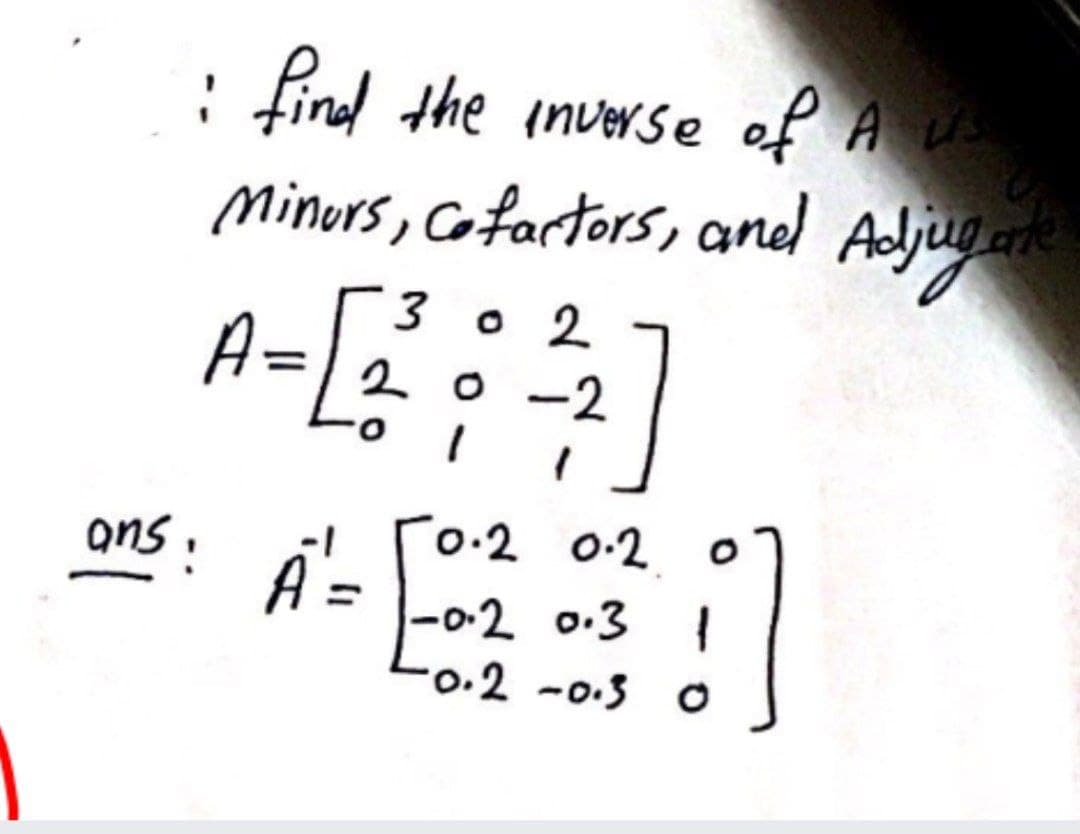 : find the inverse of A
Minors, Cofactors, and Adjugate
A = [ 3 0 2
2 0 -2
0 1 1 ]
ans: A⁻¹ = [ 0.2 0.2 0
-0.2 0.3 1
0.2 -0.3 0 ]